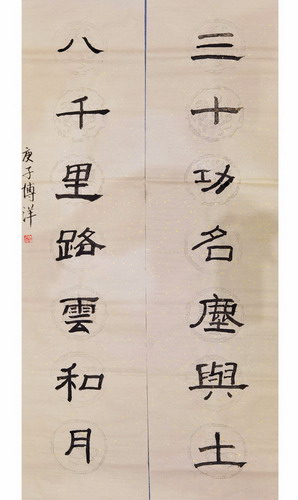 三十功名塵與土
八千里路雲和月
庚子博洋